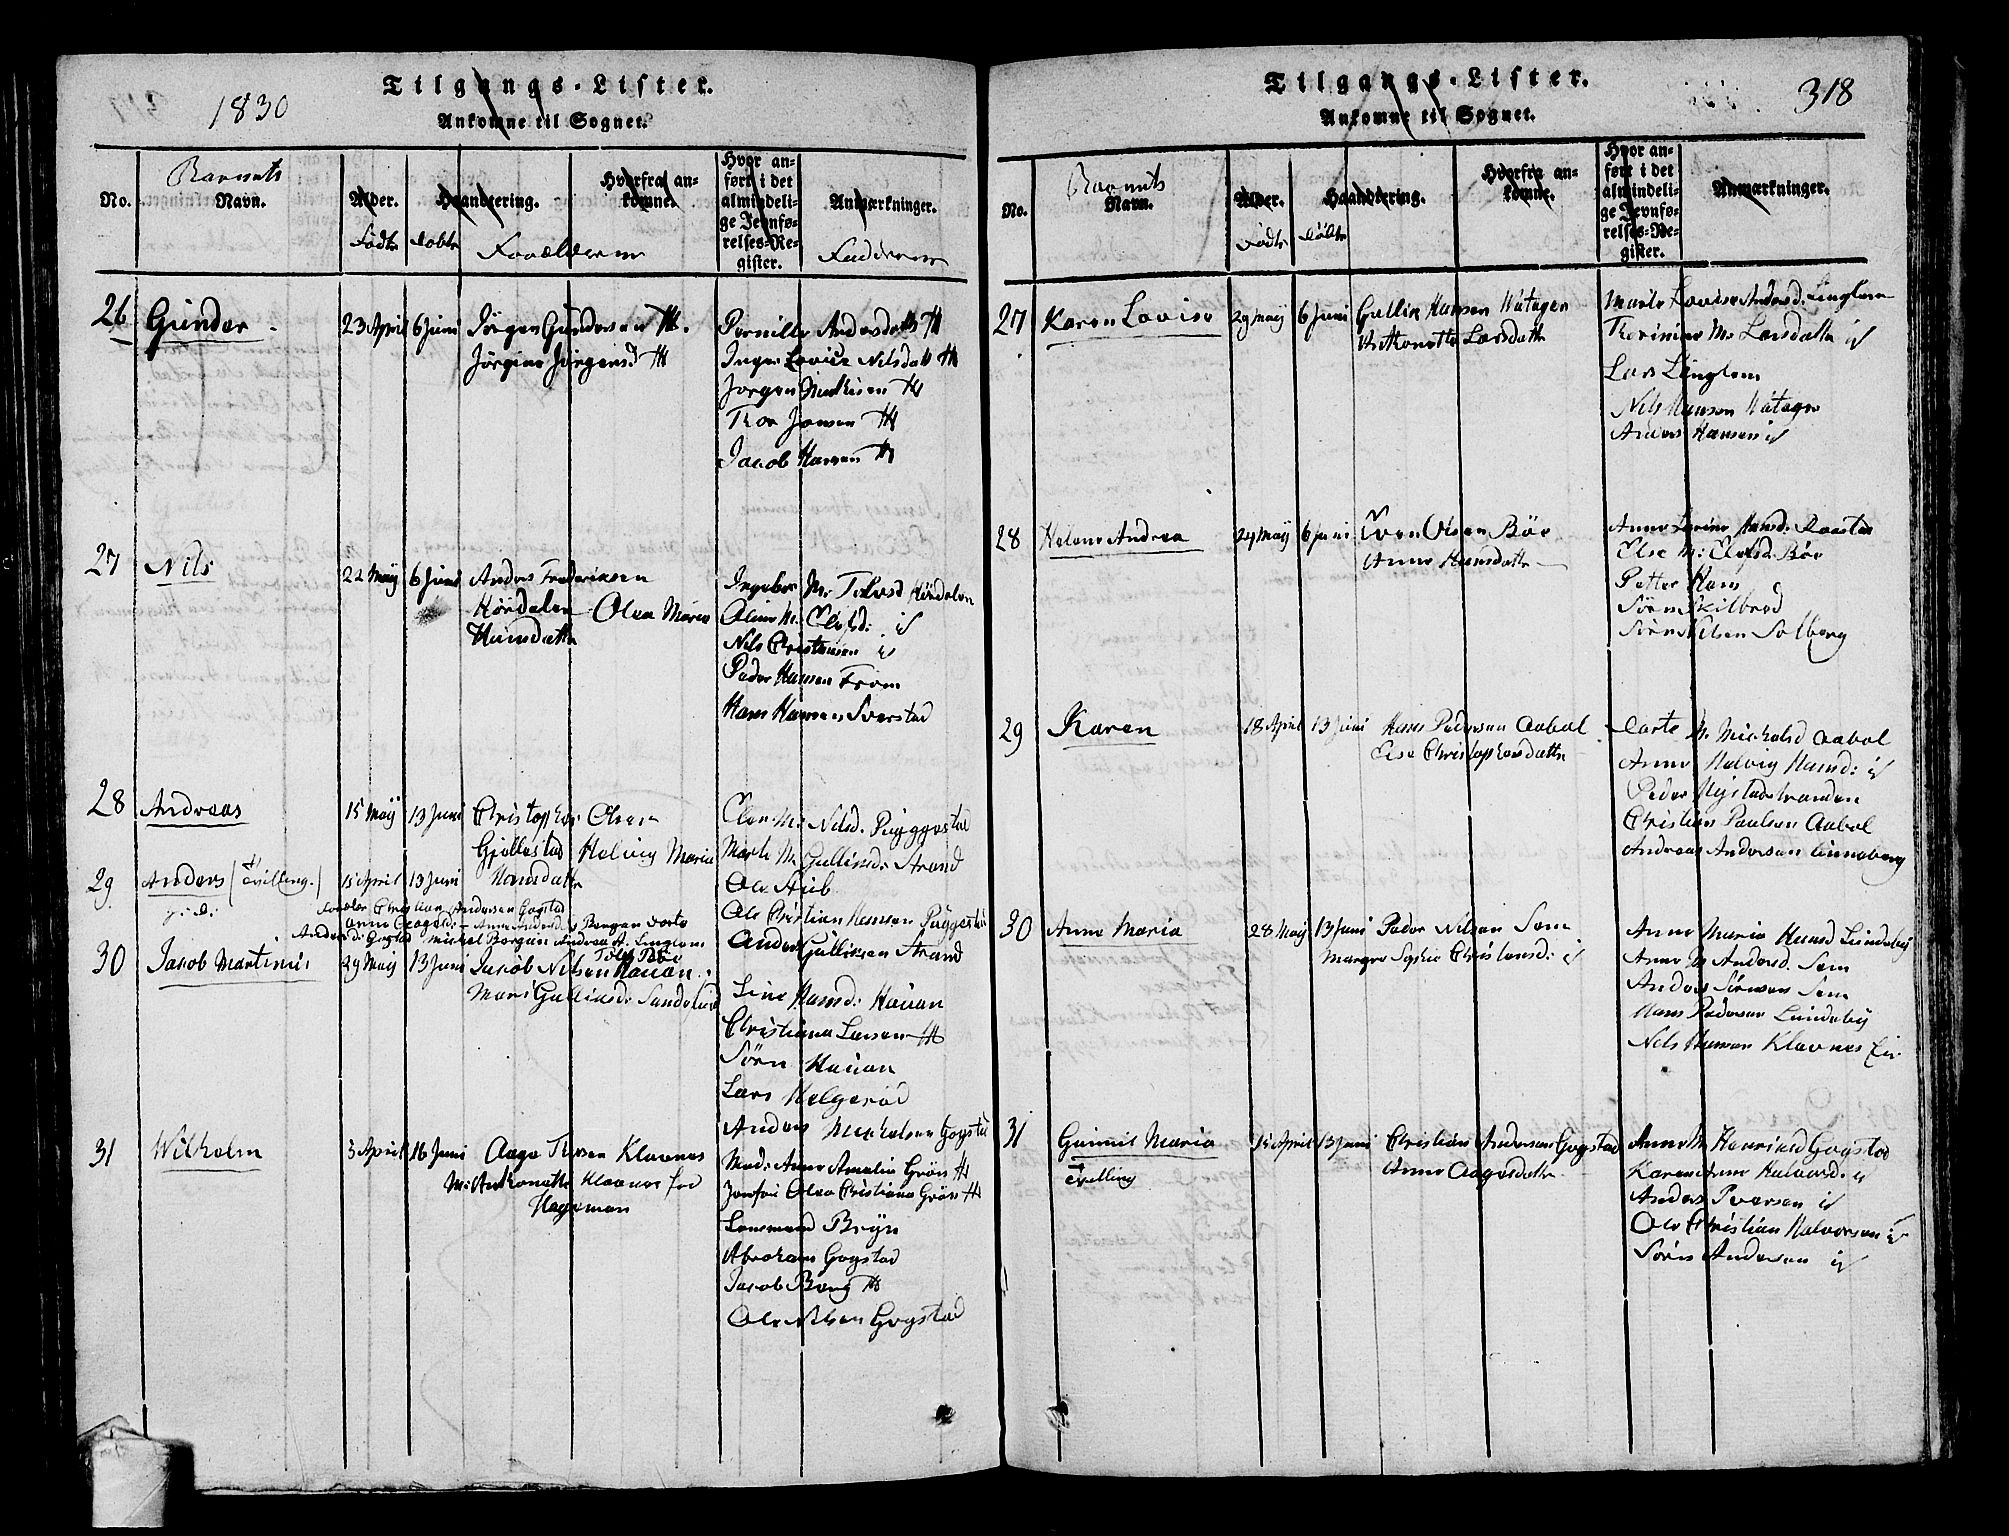 1830
Tilgangs-Lister.
Ankomne til Sognet.
No.
Barnets
Navn.
Alder.
Fødte
Døbte
Haandtering.
Forældrene
Hvorfra an-
komne.
Hvor an-
ført i det
almindeli-
ge Jevnfø-
relses-Re-
gister.
Anmærkninger.
Fadderne
26 Gunder 23 April 6 Juni Jörgen Gundersen TH.
Jörgine Jörgensd TH
Pernille Andersdatt TH
Inger Lovise Nilsdatt TH
Jörgen Mathisen TH
Thor Jonsen TH
Jacob Hansen TH
27 Nils 22 Maÿ 6 Juni Anders Frederiksen
Hördalen Olea Maria
Hansdatte
Ingebor M. Hördalen
Nils Christensen
Peder Hansen From
Hans Hansen Sverstad
28 Andreas 15 Maÿ 13 Juni Christopher Olsen
Gjellestad Helvig Maria
Hansdatte
Nilsd. Puggestad
Marte M. Gulliksd. Strand
Ole Stub
Ole Christian Hansen Puggestad
Anders Gulliksen Strand
29 Anders (Tvilling.) 15 April 13 Juni
Forældr Christian Andersen Gogstad
Anne Aagesd.
30 Jacob Martinus 29 Maÿ 13 Juni Jacob Nilsen Hauan
Mari Gulliksd: Sundelid
Line Hansd: Hauan
Christiane Larsen TH
Sörn Hauan
Lars Helgeröd
Anders Michelsen Gogstad
31 Wilhelm 3 April 16 Juni Aage Klavnes
M. Anthonette Klavnes fød
Hageman
Mad: Anne Amalia Grön TH
Jomfrue Olea Christiana Grön TH
Lensmand Bryn
Abraham Gogstad
Jacob Berg TH
Ole Nilsen Gogstad
318
Tilgangs-Lister.
Ankomne til Sognet.
No.
Barnets
Navn.
Alder.
Fødte
Døbte
Haandtering.
Hvorfra an-
komne.
Hvor an-
ført i det
almindeli-
ge Jevnfø-
relses-Re-
gister.
Anmærkninger.
27 Karen Lovise 29 maÿ 6 Juni Gullik Hansen Natager
Anthonette Larsdatte
Marte Lovise Andersd. Linglem
M. Larsdatte
Lars Linglem
Nils Hansen Natager
Anders Hansen
28 Helene Andrea 24 Maÿ 6 Juni Even Olsen Böe
Anne Hansdatte
Anne Hansd.
Else M: Böe
Petter Ham
Sörn Skilbred
Sörn Nilsen Solberg
29 Karen 18 April 13 Juni Hans Pedersen Aabøl
Else Christophersdatte
Dorte M. Michelsd Aabøl
Anne Helvig Hansd:
Peder Nystadstranden
Christian Paulsen Aabøl
Andreas Andersen Unneberg
30 Anne Maria 28 Maÿ 13 Juni Peder Nilsen Sem
Margre Sophie Christensd:
Anne Maria Hansd Lundeby
Anne M Andersd Sem
Anders Sörnsen Sem
Hans Pedersen Lundeby
Nils Hansen Klavnes
31 Gunnil Maria 15 April 13 Juni Christian Andersen Gogstad
Tvilling
Anne Aagesdatte
Anne M Henriksd Gogstad
Karen Anne Halvorsd:
Anders Iversen
Ole Christian Halvorsen
Sörn Andersen